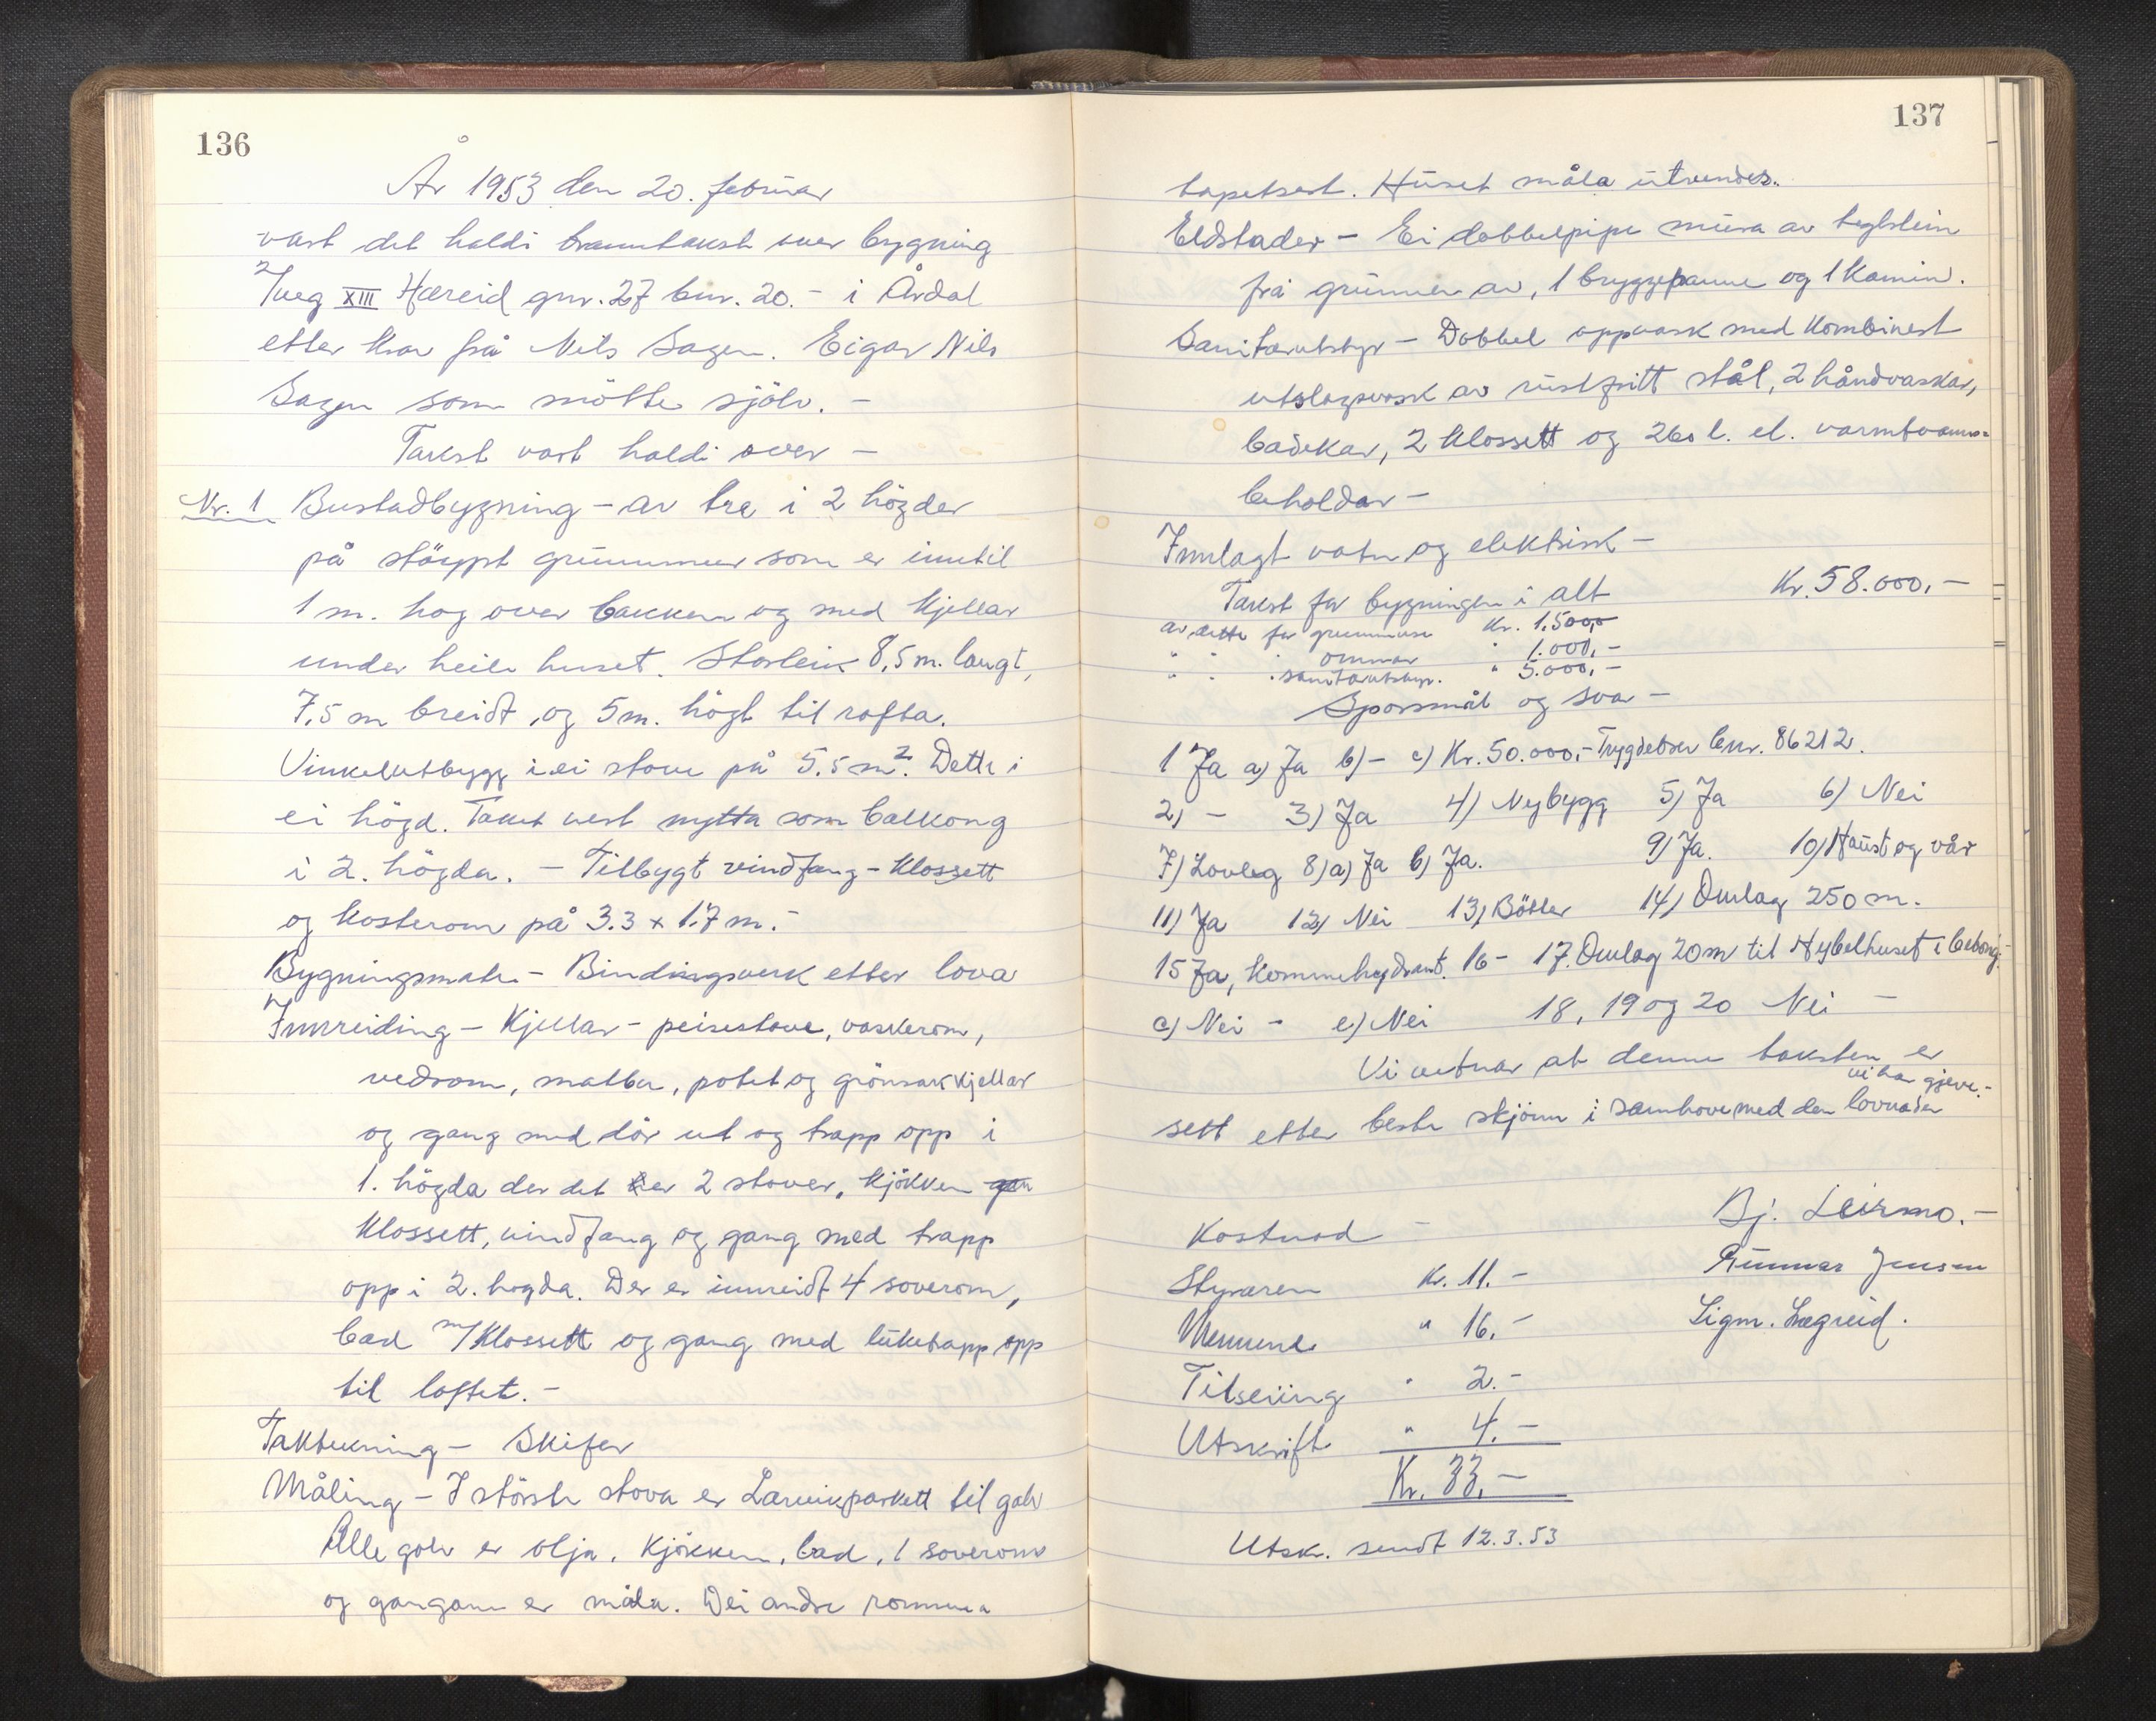 136
År 1953 den 20. februar
vart det haldi branntakst over bygning
2/veg XIII Hæreid gnr. 27 bnr. 20.- i Årdal
etter krav frå Nils Sagen. Eigar Nils
Sagen som mötte sjölv. -
Takst vart haldi over -
Nr. 1 Bustadbygning - av tre i 2 högder
på stöypt grunnmur som er inntil
1 m. hög over bakken og med kjellar
under heile huset. Storleik 8,5 m. langt,
7.5 m breidt, og 5 m. högt til rafta.
Vinkelutbygg i ei stove på 5.5 m². Dette i
ei högd. Taket vert nytta som balkong
i 2. högda. - Tilbygt vindfang - klossett
og kosterom på 3.3 x 1.7 m. -
Bygningsmåte - Bindingsverk etter lova
Innreiding - Kjellar - peisestove, vaskerom,
vedrom, matbu, potet og grönsakkjellar
og gang med dör ut og trapp opp i
1. högda der det er 2 stover, kjökken
klossett, vindfang og gang med trapp
opp i 2. högda. Der er innreidt 4 soverom,
bad m/klossett og gang med luketrapp opp
til loftet. -
Taktekning - Skifer
Måling - I störste stova er Larvikparkett til golv
Alle golv er olja. Kjökken, bad, 1 soverom
og gangane er måla. Dei andre romma
137
tapetsert. Huset måla utvendes.
Eldstader - Ei dobbelpipe mura av teglstein
frå grunnen av, 1 bryggepanne og 1 Kamin.
Sanitærutstyr - Dobbel oppvask med kombinert
utslagsvask av rustfritt stål, 2 håndvaskar,
badekar, 2 klossett og 260 l. el. varmtvanns-
beholdar -
Innlagt vatn og elektrisk -
Takst for bygningen i alt Kr. 58.000,-
av dette for grunnmur Kr. 1.500,-
" " " omnar " 1.000,-
" " " sanitærutstyr. " 5.000,-
Sporsmål og svar -
1 Ja a) Ja b) - c) Kr. 50.000,- Trygdebrev bnr. 86212.
2) - 3) Ja 4) Nybygg 5) Ja 6) Nei
7) Lovleg 8) a) Ja b) Ja. 9) Ja. 10) Haust og vår
11) Ja 12) Nei 13) Bötter 14) Omlag 250 m.
15 Ja, kommehydrant. 16 - 17. Omlag 20 m til Hybelhuset i betong.
c) Nei - e) Nei 18, 19 og 20 Nei -
Vi vitnar at denne taksten er
vi har gjeve.-
sett etter beste skjönn i samhove med den lovnaden
Kostnad - Bj. Leirmo. -
Styraren Kr. 11. - Gunnar Jensen
Mennene " 16. - Sigm. Lægreid.
Tilseiing " 2. -
Utskrift " 4. -
Kr. 33. -
Utskr. sendt 12.3.53